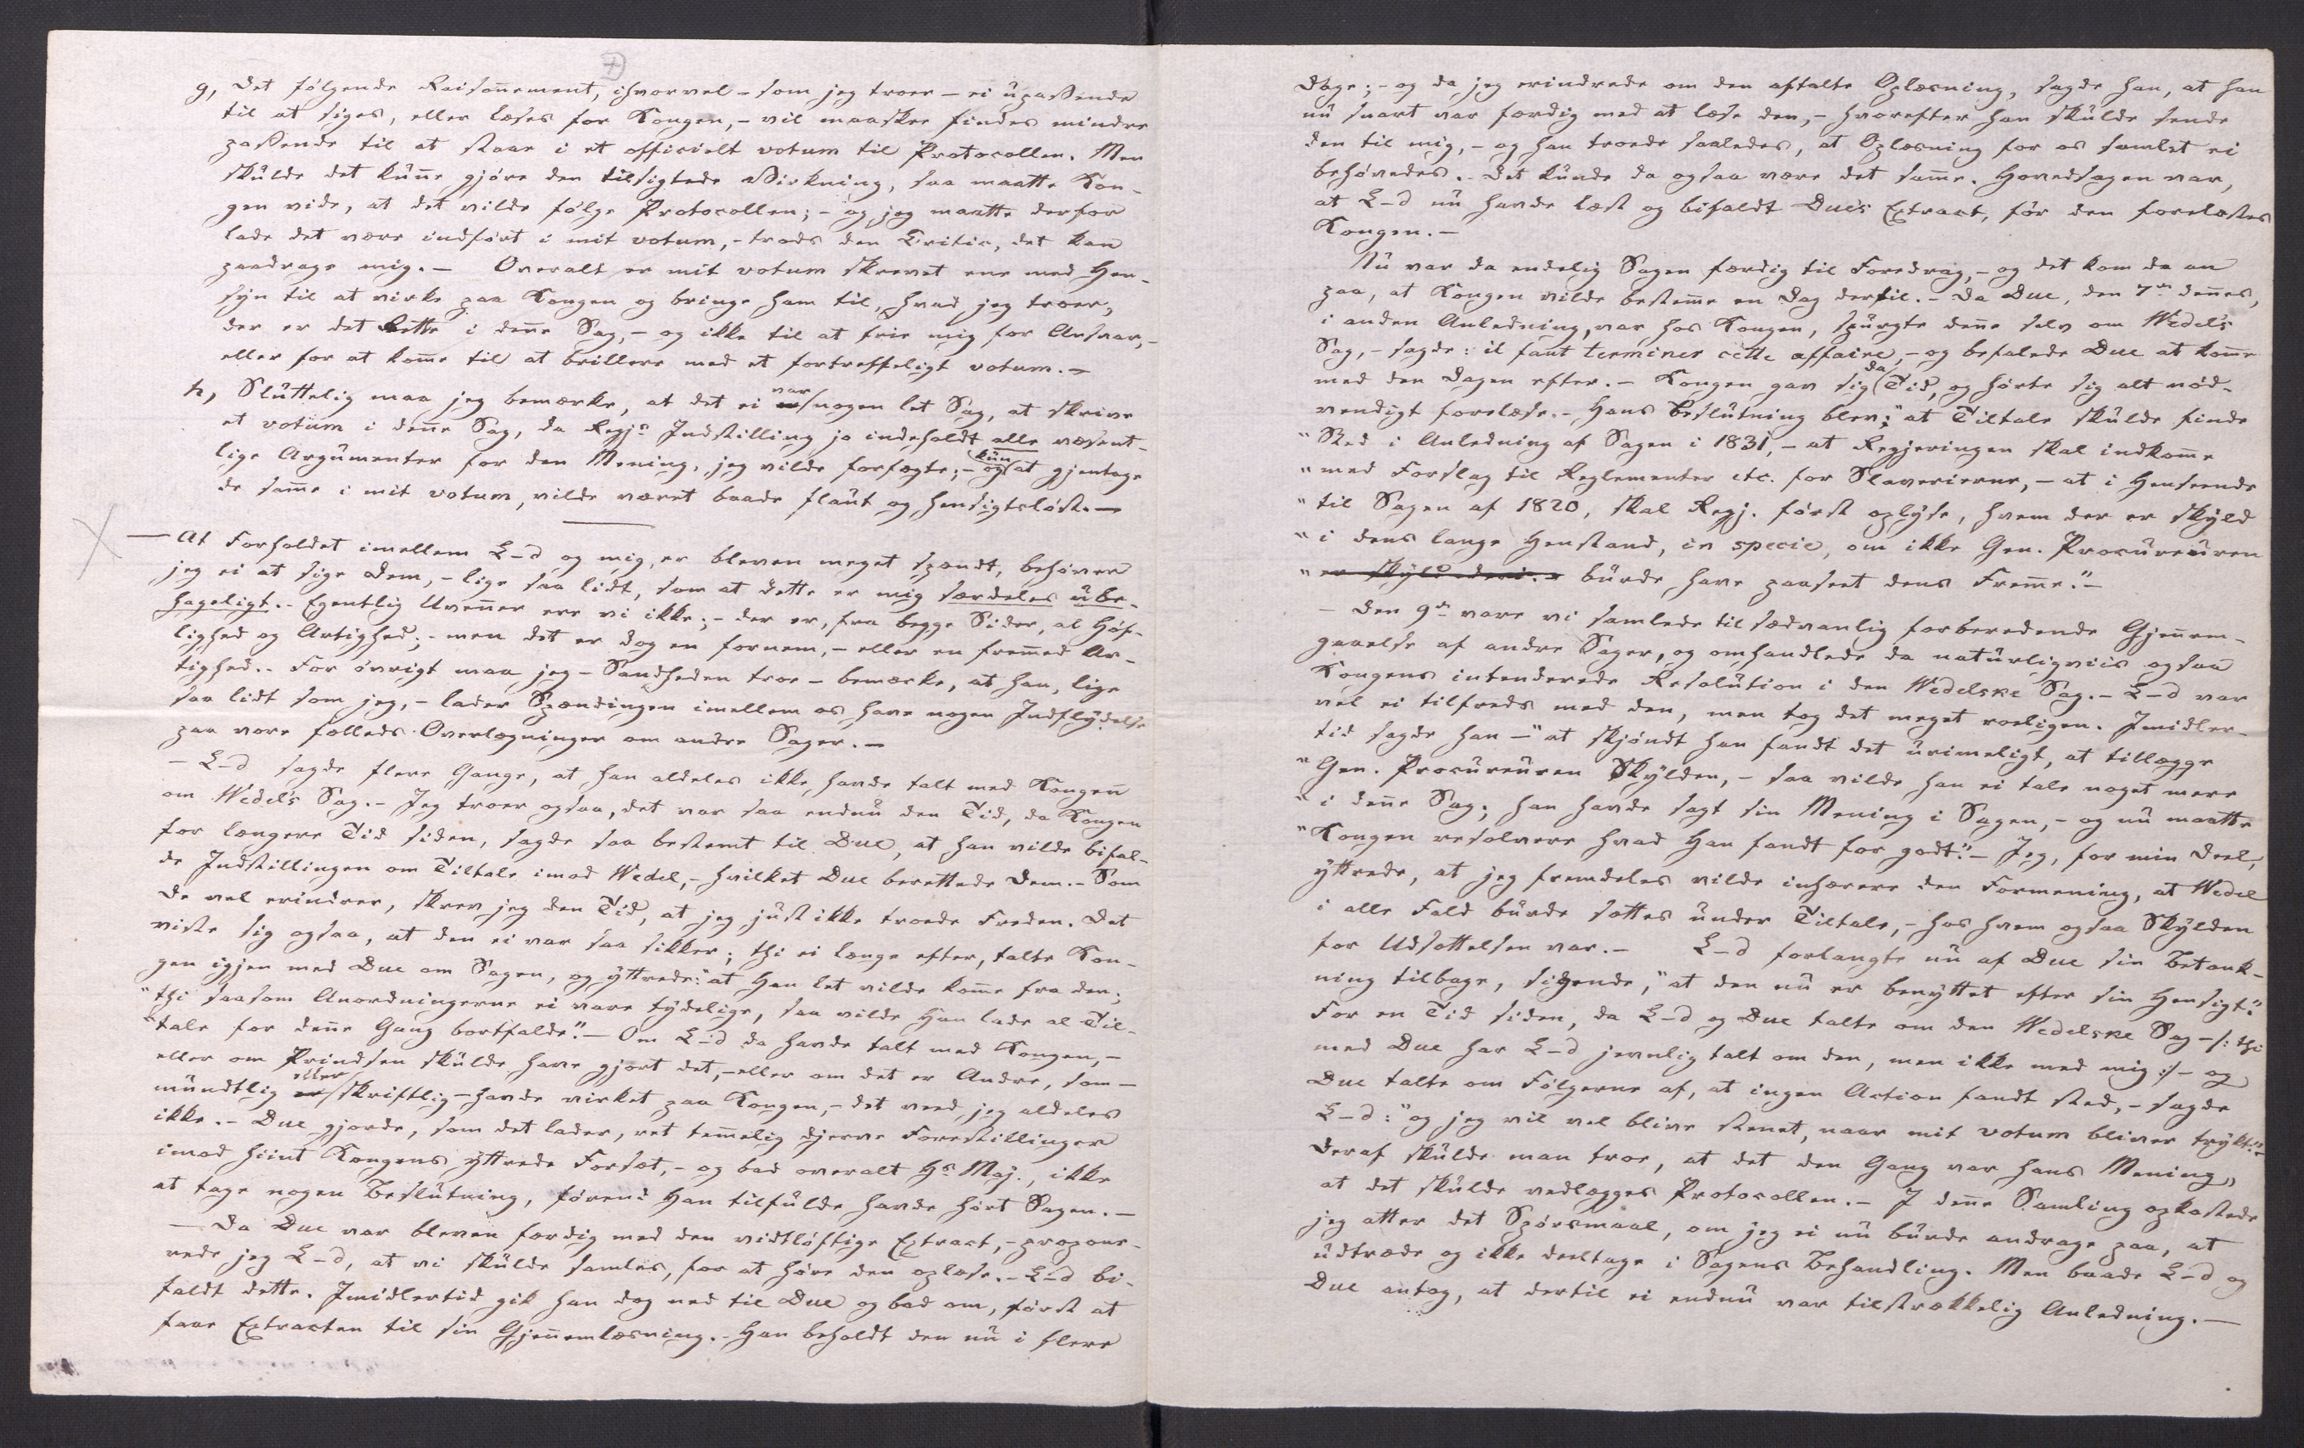 g, Det følgende Raisonnement, ihvorvel – som jeg troer – ei upassende
til at siges, eller læses for Kongen, – vil maaskee findes mindre
passende til at staae i et officielt votum til Protocollen. Men
skulde det kunne gjøre den tilsigtede Virkning, saa maatte Kon-
gen vide, at det vilde følge Protocollen; – og jeg maatte derfor
lade det være indført i mit votum, – trods den Critic, det kan
paadrage mig. – Overalt er mit votum skrevet ene med Hen-
syn til at virke paa Kongen og bringe ham til, hvad jeg troer,
der er det Rette i denne Sag, – og ikke til at frie mig for Ansvar, –
eller for at komme til at brillere med et fortreffeligt votum. –
h, Sluttelig maa jeg bemærke, at det ei var nogen let Sag, at skrive
et votum i denne Sag, da Regjs Indstilling jo indeholdt alle væsent-
lige Argumenter for den Mening, jeg vilde forfægte; – og kun at gjentage
de samme i mit votum, vilde været baade flaut og hensigtsløst. –
— At Forholdet imellem L–d og mig, er bleven meget spændt, behøver
jeg ei at sige Dem, – lige saa lidt, som at dette er mig særdeles ube-
hageligt. – Egentlig Uvenner ere vi ikke; – der er, fra begge Sider, al Høf-
lighed og Artighed; – men det er dog en fornem, – eller en fremmed Ar-
tighed. – For øvrigt maa jeg – Sandheden troe – bemærke, at han, lige
saa lidt som jeg, – lader Spændingen imellem os have nogen Indflydelse
paa vore fælleds Overlægninger om andre Sager. –
– L–d sagde flere Gange, at han aldeles ikke havde talt med Kongen
om Wedel's Sag. – Jeg troer ogsaa, det var saa endnu den Tid, da Kongen
for længere Tid siden, sagde saa bestemt til Due, at han vilde bifal-
de Indstillingen om Tiltale imod Wedel, – hvilket Due berettede Dem. – Som
De vel erindrer, skrev jeg den Tid, at jeg just ikke troede Freden. Det
viste sig ogsaa, at den ei var saa sikker; thi ei længe efter, talte Kon-
gen igjen med Due om Sagen, og yttrede: "at Han let vilde komme fra den;
"thi saasom Anordningerne ei vare tydelige, saa vilde Han lade al Til-
"tale for denne Gang bortfalde". – Om L–d da havde talt med Kongen, –
eller om Prindsen skulde have gjort det, – eller om det er Andre, som –
mundtlig eller skriftlig – havde virket paa Kongen, – det veed jeg aldeles
ikke. – Due gjorde, som det lader, ret temmelig djerve Forestillinger
imod hiint Kongens yttrede Forsæt, – og bad overalt Hs Maj., ikke
at tage nogen Beslutning, førend Han tilfulde havde hørt Sagen. –
— Da Due var bleven færdig med den vidtløftige Extract, – propone-
rede jeg L–d, at vi skulde samles, for at høre den oplæse. – L–d bi-
faldt dette. Imidlertid gik han dog ned til Due og bad om, først at
faae Extracten til sin Gjennemlæsning. – Han beholdt den nu i flere
Dage; – og da jeg erindrede om den aftalte Oplæsning, sagde han, at han
nu snart var færdig med at læse den, – hvorefter han skulde sende
den til mig, – og han troede saaledes, at Oplæsning for os samlet ei
behøvedes. – Det kunde da ogsaa være det samme. Hovedsagen var,
at L–d nu havde læst og bifaldt Due's Extract, før den forelæstes
Kongen. –
Nu var da endelig Sagen færdig til Foredrag, – og det kom da an
paa, at Kongen vilde bestemme en Dag dertil. – Da Due, den 7de dennes,
i anden Anledning, var hos Kongen, spurgte denne selv om Wedel's
Sag, – sagde: il faut terminer cette affaire, – og befalede Due at komme
med den Dagen efter. – Kongen gav sig da Tid, og hørte sig alt nød-
vendigt forelæse. – Hans Beslutning blev: "at Tiltale skulde finde
"Sted i Anledning af Sagen i 1831, – at Regjeringen skal indkomme
"med Forslag til Reglementer etc. for Slaverierne, – at i Henseende
"til Sagen af 1820, skal Regj. først oplyse, hvem der er Skyld
"i dens lange Henstand, in specie, om ikke Gen. Procureuren
"er skyld deri. – burde have paaseet dens Fremme." –
– Den 9de vare vi samlede til sædvanlig forberedende Gjennem-
gaaelse af andre Sager, og omhandlede da naturligviis ogsaa
Kongens intenderede Resolution i den Wedelske Sag. – L–d var
vel ei tilfreds med den, men tog det meget roeligen. Imidler-
tid sagde han – "at skjøndt han fandt det urimeligt, at tillægge
"Gen. Procureuren Skylden, – saa vilde han ei tale noget mere
"i denne Sag; han havde sagt sin Mening i Sagen, – og nu maatte
"Kongen resolvere hvad Han fandt for godt." – Jeg, for min Deel,
yttrede, at jeg fremdeles vilde inhærere den Formening, at Wedel
i alle Fald burde sættes under Tiltale, – hos hvem ogsaa Skylden
for Udsættelsen var. – L–d forlangte nu af Due sin Betænk-
ning tilbage, sigende, "at den nu er benyttet efter sin Hensigt".
For en Tid siden, da L–d og Due talte om den Wedelske Sag – /: thi
med Due har L–d jevnlig talt om den, men ikke med mig :/ – og
Due talte om Følgerne af, at ingen Action fandt Sted, – sagde
L–d: "og jeg vil vel blive stenet, naar mit votum bliver trykt."
Deraf skulde man troe, at det den Gang var hans Mening,
at det skulde vedlægges Protocollen. – I denne Samling opkastede
jeg atter det Spørsmaal, om jeg ei nu burde andrage paa, at
udtræde og ikke deeltage i Sagens Behandling. Men baade L–d og
Due antog, at dertil ei endnu var tilstrækkelig Anledning. –